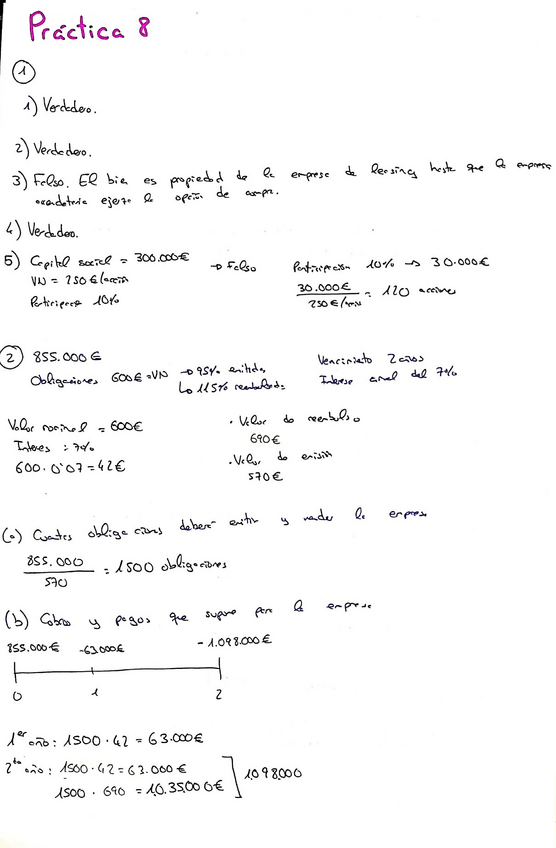 Práctica 8
1
1) Verdadero.
2) Verdadero.
3) Falso. El bien es propiedad de la empresa de leasing hasta que la empresa
arrendataria ejerza la opción de compra.
4) Verdadero.
5) Capital social = 300.000€ → Falso Participación 10% → 30.000€
VN = 250€/acción 30.000€ / 250€/acción = 120 acciones
Participación 10%
2 855.000€ Vencimiento 2 años
Obligaciones 600€=VN → 95% emitida Interés anual del 7%
↳ 115% reembolsada
Valor nominal = 600€ · Valor de reembolso
Interés : 7% 690€
600 · 0'07 = 42€ · Valor de emisión
570€
(a) Cuantas obligaciones deberá emitir y vender la empresa
855.000 / 570 = 1500 obligaciones
(b) Cobros y pagos que supone para la empresa
855.000€ -63.000€ -1.098.000€
0 1 2
1er año: 1500 · 42 = 63.000€
2do año: 1500 · 42 = 63.000€
1500 · 690 = 1.035.000€ ] 1.098.000